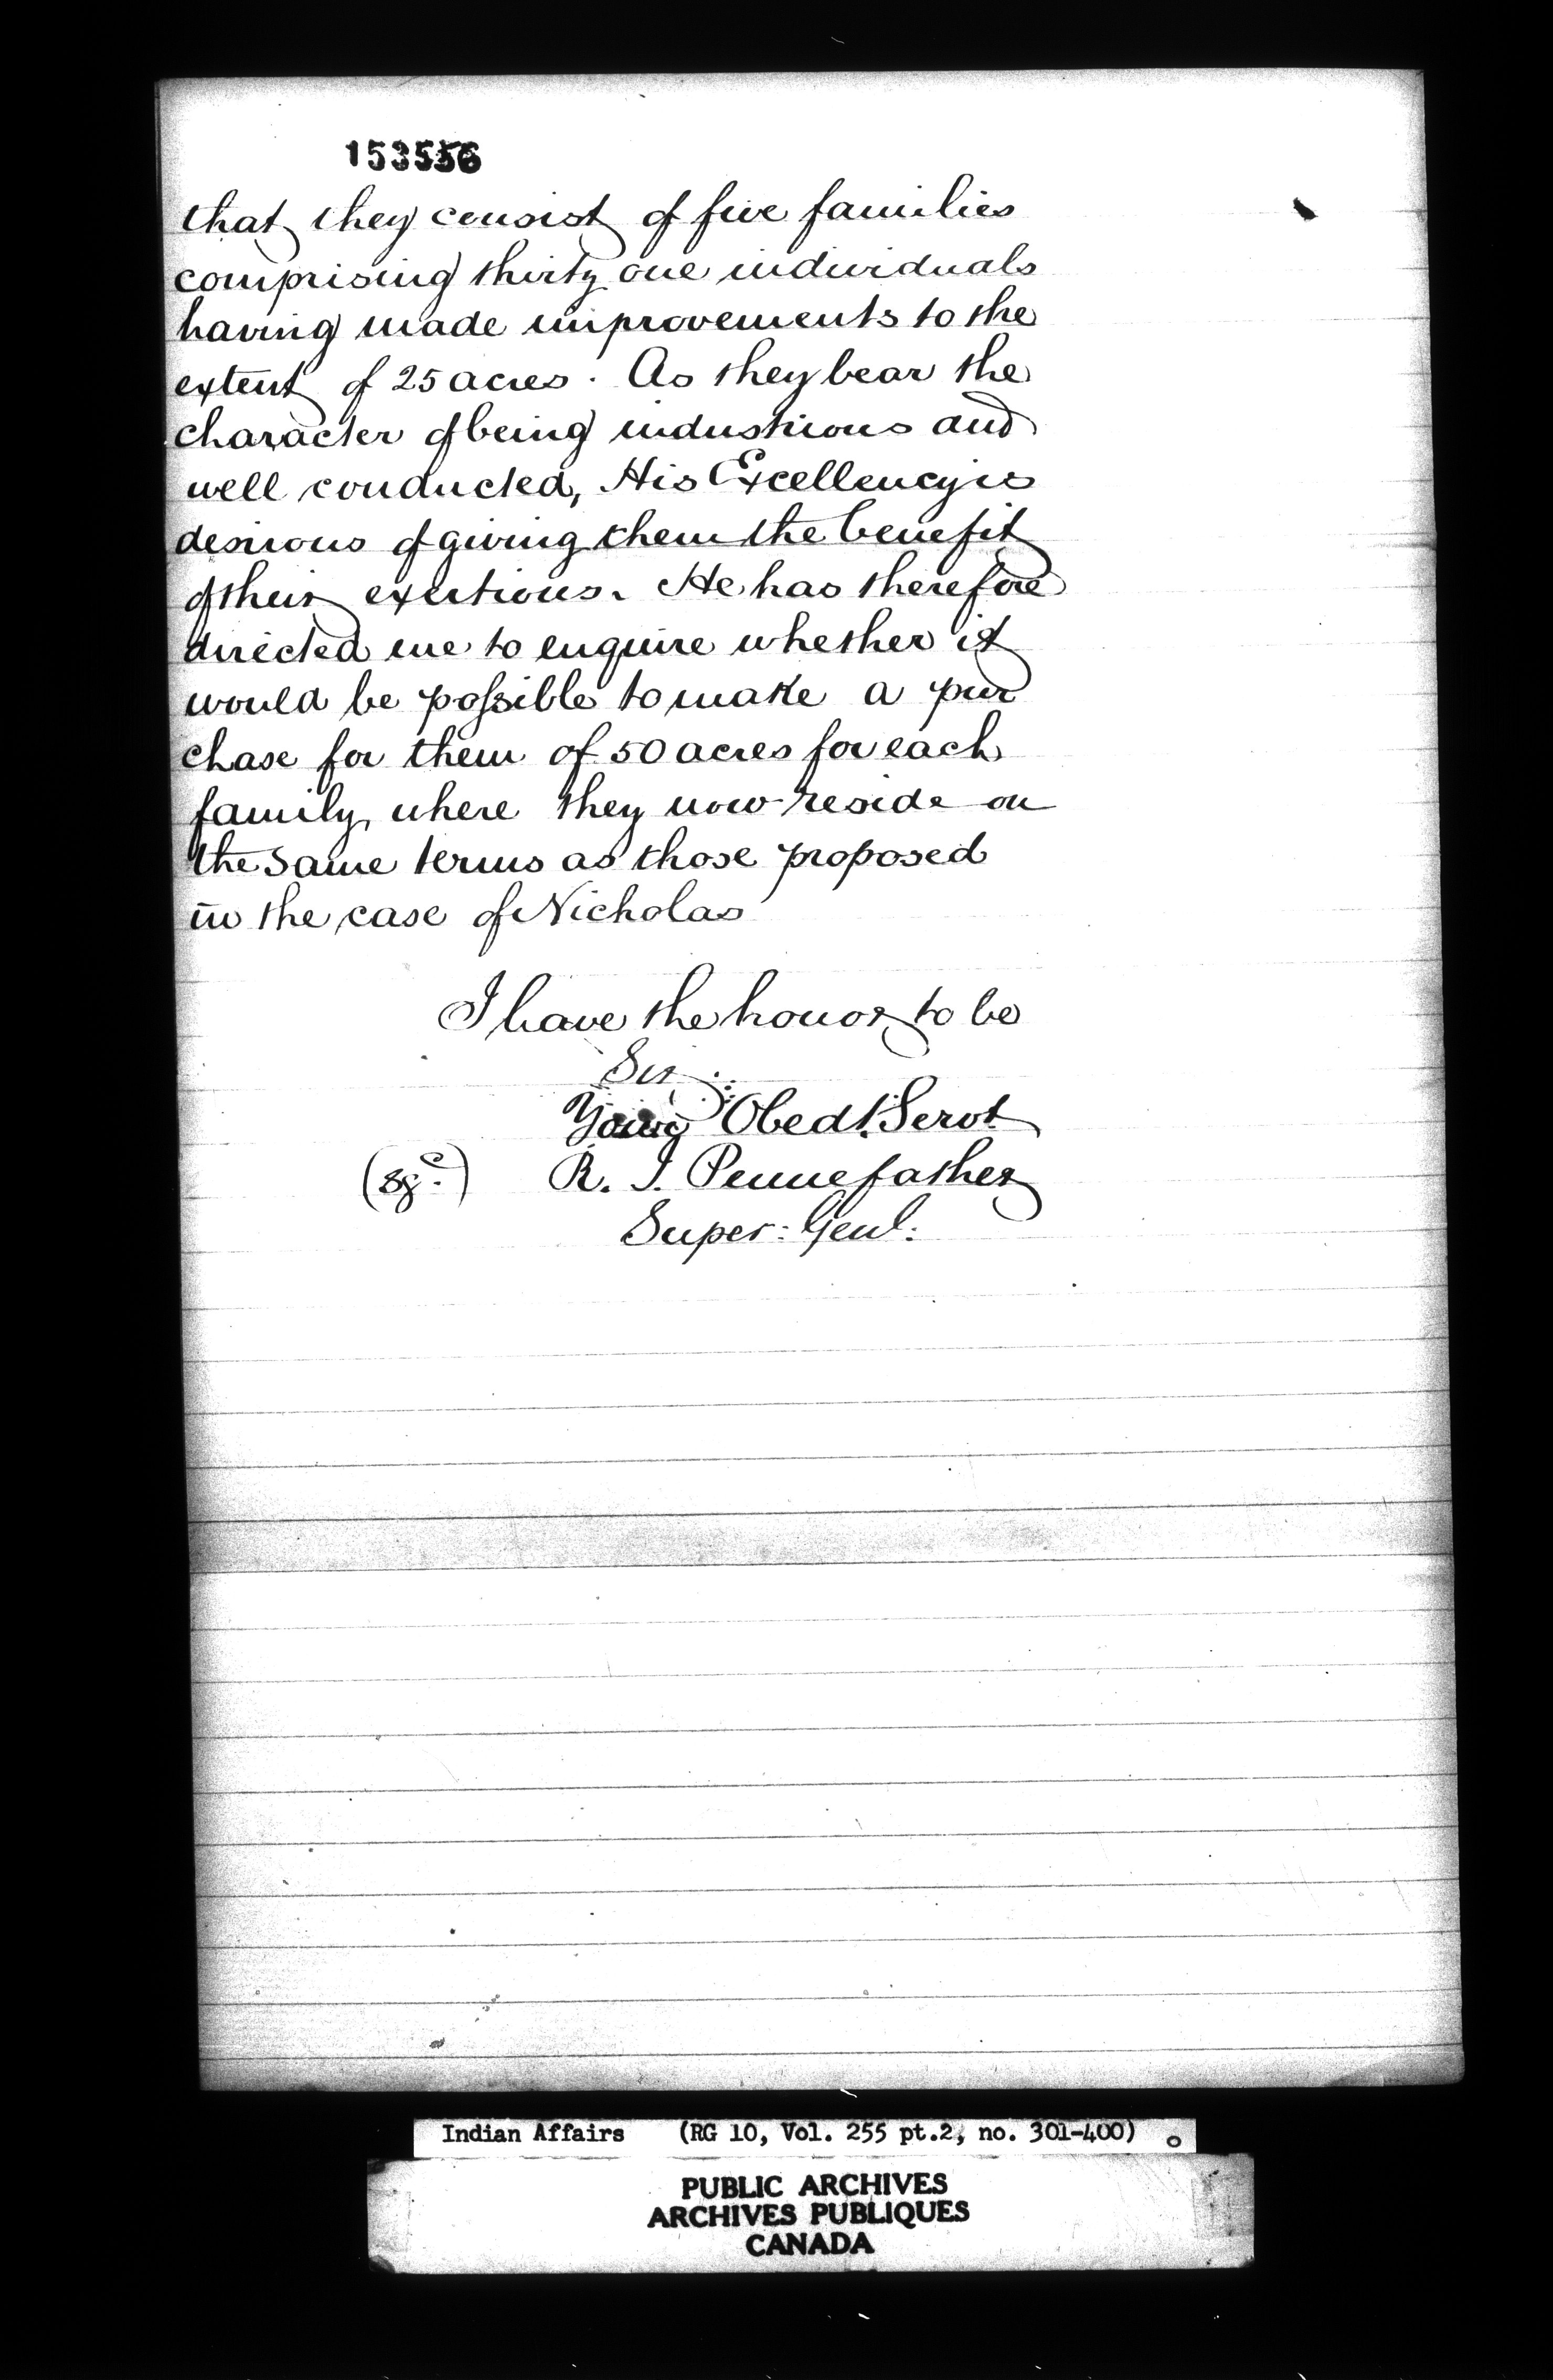 153556
that they consist of five families
comprising thirty one individuals
having made improvements to the
extent of 25 acres. As they bear the
character of being industrious and
well conducted, His Excellency is
desirous of giving them the benefit
of their exertions. He has therefore
directed me to enquire whether it
would be possible to make a pur
chase for them of 50 acres for each
family, where they now reside on
the same terms as those proposed
in the case of Nicholas
I have the honor to be
Sir
Your Obedt. Servt.
R. T. Pennefather
Super: Genl.
Indian Affairs (RG 10, Vol. 255 pt.2, no. 301-400)
PUBLIC ARCHIVES
ARCHIVES PUBLIQUES
CANADA